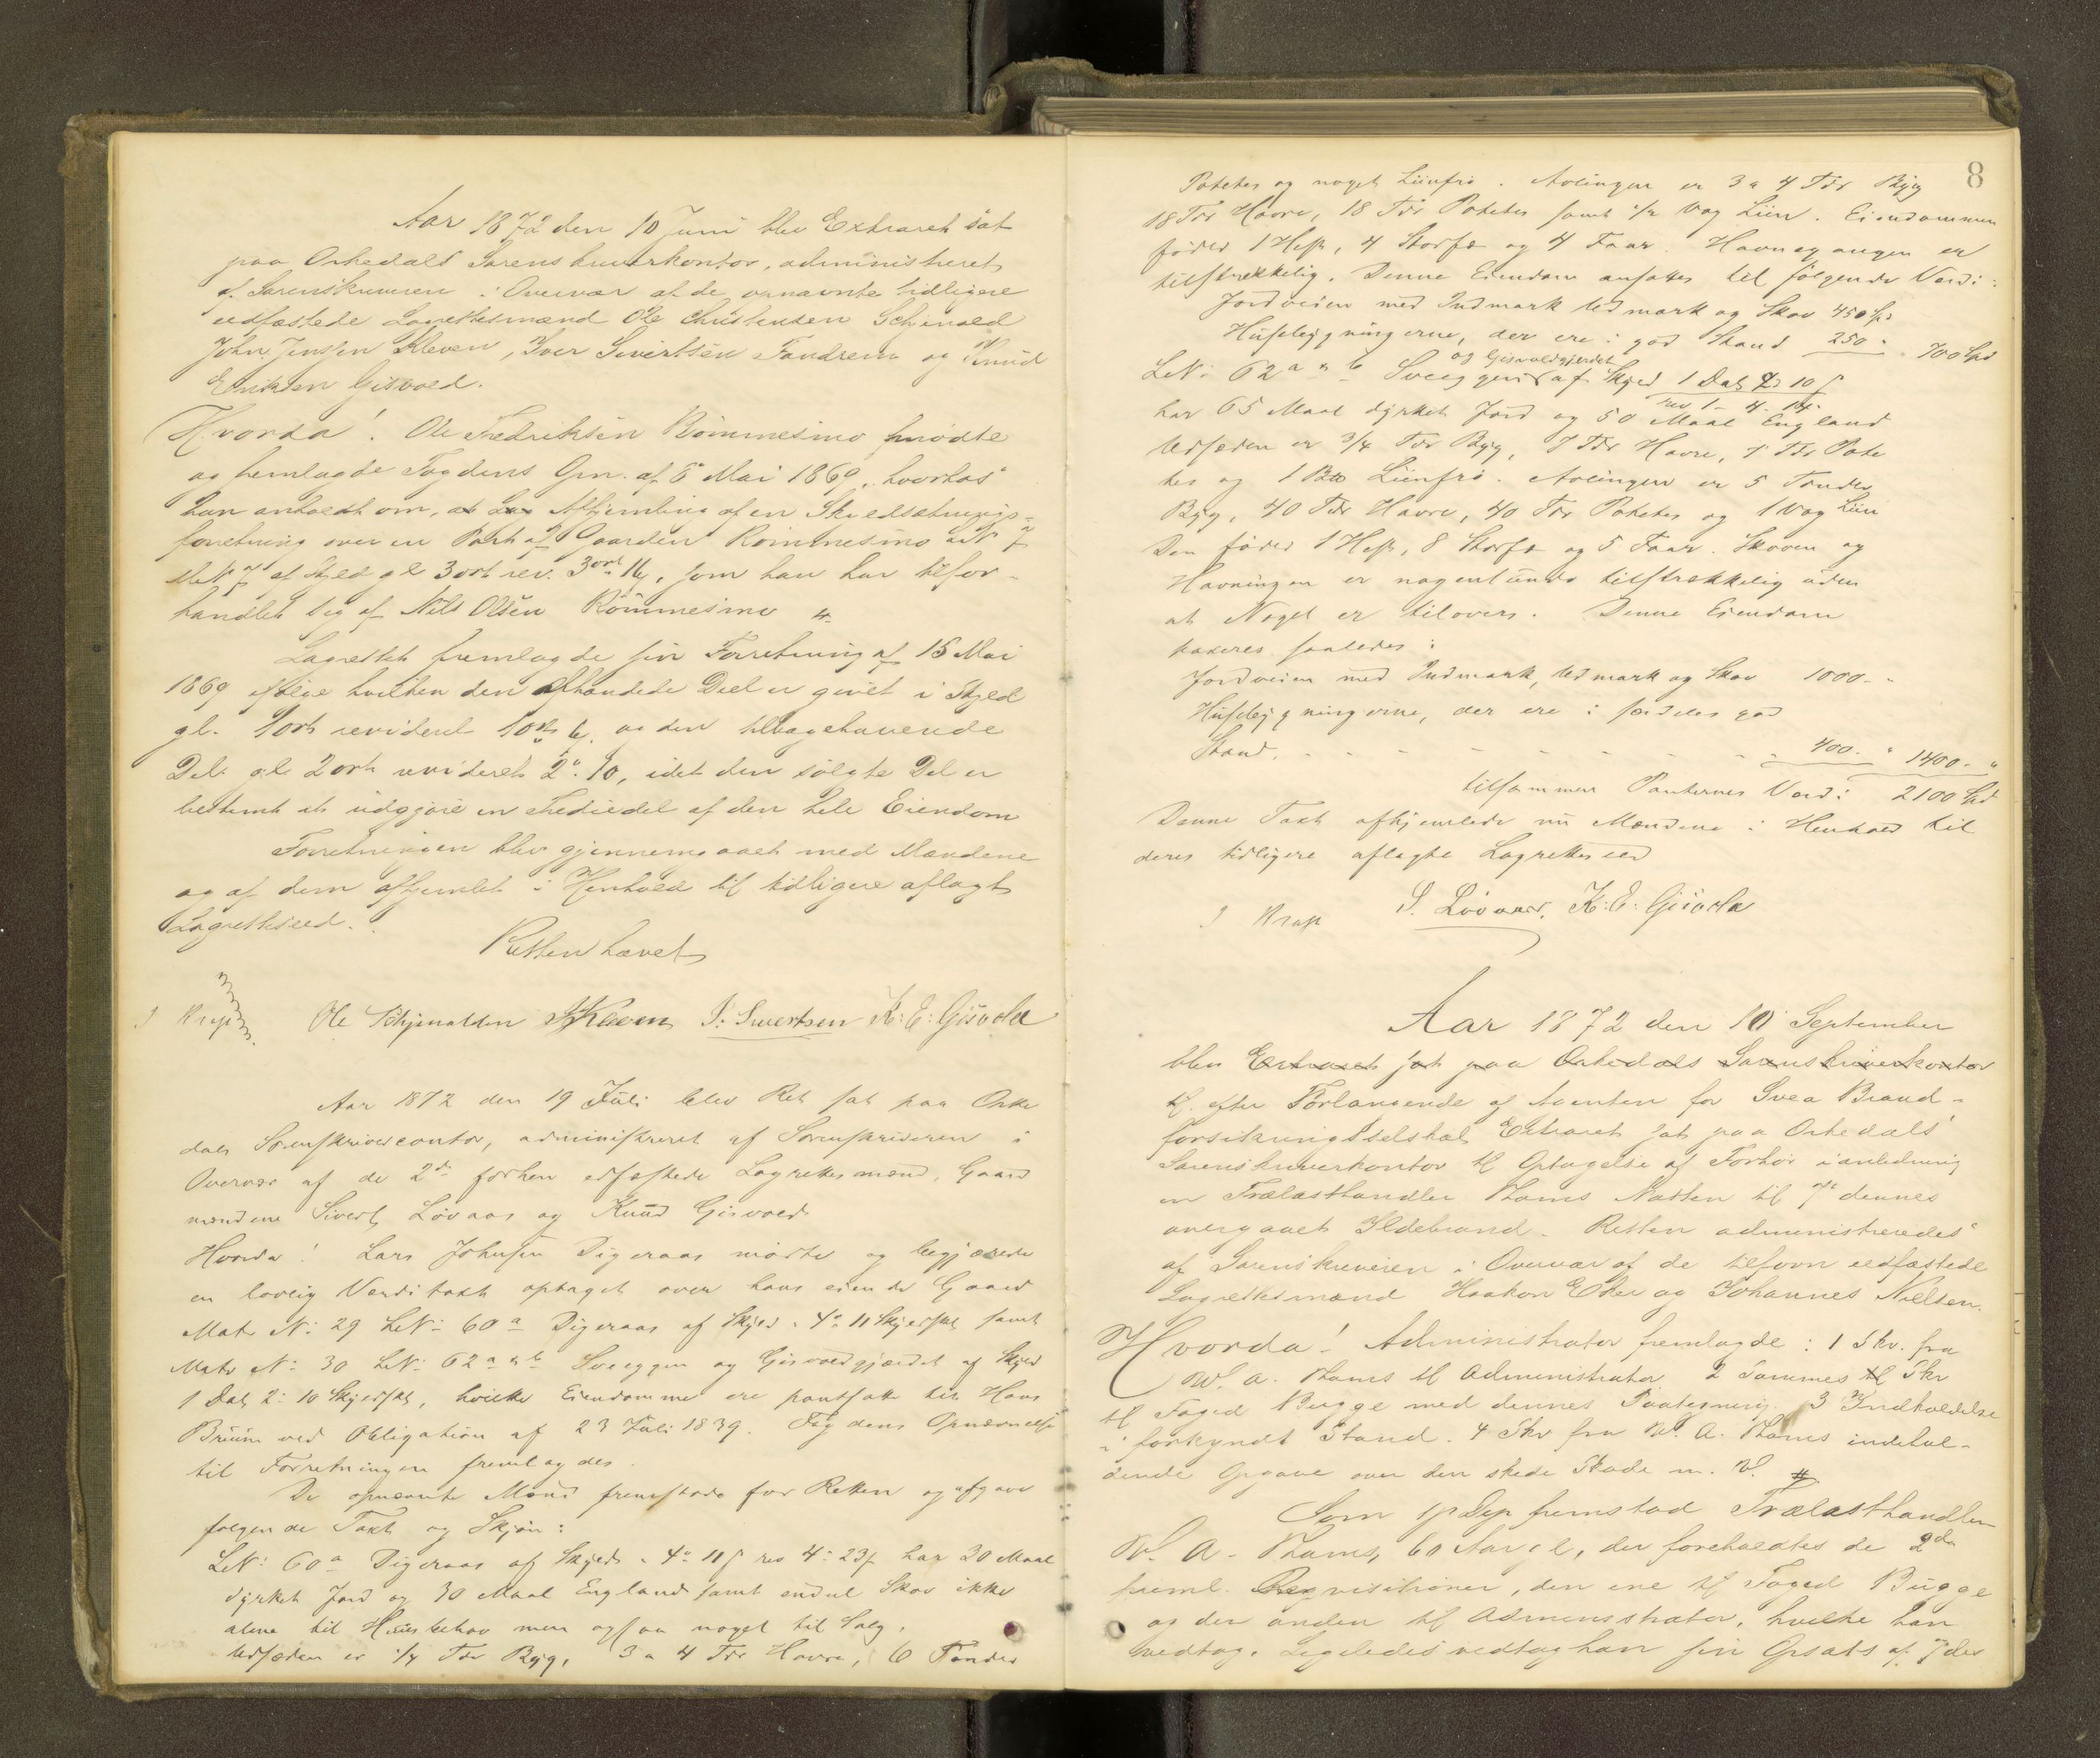 Aar 1872 den 10 Juni blev Extraret sat
paa Orkedals Sorenskriverkontor, administreret
af Sorenskriveren i Overvær af de opnævnte tidligere
edfæstede Lagrettesmænd Ole Christensen Schjenald
John Jenssen Kleven, Iver Sivertsen Fandrem og Knud
Eriksen Gisvold.
Hvorda! Ole Fredriksen Rømmesmo mødte
og fremlagde Fogdens Opn. af 6 Mai 1869, hvorhos
han anholdt om, Afhjemling af en Skyldsætnings-
forretning over en Part af Gaarden Rømmesmo
af Skyld gl 3 ort rev. 3 ort 16, som han har tilfor-
handlet sig af Nils Olsen Rømmesmo
Lagrettet fremlagde sin Forretning af 15 Mai
1869 ifølge hvilken den afhændede Deel er givet i Skyld
gl. 1 ort revideret 1 ort 6, og den tilbagehavende
Del gl. 2 ort revideret 2" 10, idet den solgte Del er
bestemt at udgjøre en Trediedel af den hele Eiendom
Forretningen blev gjennemgaaet med Mændene
og af dem afhjemlet i Henhold til tidligere aflagt
Lagretteseed.
Retten hævet
J Krag Ole Schjenalden JJKleven I: Sivertsen K: E: Gisvold
Aar 1872 den 19 Juli blev Ret sat paa Orke
dals Sorenskrivercontor, administreret af Sorenskriveren i
Overvær af de 2de forhen edfæstede Lagrettesmænd, Gaard
mændene Sivert Løvaas og Knud Gisvold
Hvorda! Lars Johnsen Digeraas mødte og begjærede
en lovlig Verditaxt optaget over hans eiende Gaard
Matr No 29 LNo 60 a Digeraas af Skyld " 4" 11 Skjerfsk samt
Matr No 30 LNo 62 a & b Sveeggen og Gisvoldgjærdet af Skyld
1 Dal 2" 10 Skjerfsk, hvilke Eiendomme ere pantsatte til Hans
Bruun ved Obligation af 23 Juli 1839. Fogdens Opnævnelse
til Forretningen fremlagdes.
De opnævnte Mænd fremstode for Retten og afgave
følgende Taxt og Skjøn:
LNo 60 a Digeraas af Skyld " 4" 11 s rev 4" 23 s har 30 Maal
dyrket Jord og 30 Maal England samt endel Skov ikke
alene til Huusbehov men ogsaa noget til Salg.
Udsæden er 1/4 Tdr Byg, 3 a 4 Tdr Havre, 6 Tønder
8
Poteter og noget Liinfrø. Avlingen er 3 a 4 Tdr Byg
18 Tdr Havre, 18 Tdr Poteter samt 1/2 Vog Liin. Eiendommen
føder 1 Hest, 4 Storfæ og 4 Faar. Havnegangen er
tilstrækkelig. Denne Eiendom ansattes til følgende Verdi:
Jordveien med Indmark Udmark og Skov 450 Spd
Husebygningerne, der ere i god Stand 250 " 700 Spd
og Gisvoldgjerdet
LNo 62 a & b Sveeggen af Skyld 1 Dal 2" 10 s
rev 1 - 4 - 14.
har 65 Maal dyrket Jord og 50 Maal England
Udsæden er 3/4 Tdr Byg, 7 Tdr Havre, 5 Tdr Pote
ter og 1 Liinfrø. Avlingen er 5 Tønder
Byg, 40 Tdr Havre, 40 Tdr Poteter og 1 Vog Liin
Den føder 1 Hest, 8 Storfæ og 5 Faar. Skoven og
Havningen er nogenlunde tilstrækkelig uden
at Noget er tilovers. Denne Eiendom
taxeres saaledes:
Jordveien med Indmark, Udmark og Skov 1000 - "
Husebygningerne, der ere i særdeles god
Stand. - - - - - - - - 400. " 1400. "
tilsammen Panternes Verdi 2100 Spd
Denne Taxt afhjemlede nu Mændene i Henhold til
deres tidligere aflagte Lagretteseed
J Krag S. Løvaas. K: E: Gisvold
Aar 1872 den 10 September
blev Extraret sat paa Orkedals Sorenskriverkontor
efter Forlangende af Agenten for Svea Brand-
forsikringsselskab Extraret sat paa Orkedals
Sorenskriverkontor til Optagelse af Forhør i anledning
en Trælasthandler Thams Natten til 7de dennes
overgaaet Ildebrand. Retten administreredes
af Sorenskriveren i Overvær af de tilforn edfæstede
Lagrettesmænd Haakon Eker og Johannes Nielsen.
Hvorda! Administrator fremlagde: 1 Skr. fra
W. A. Thams til Administrator 2 Sammes Skr
til Foged Bugge med dennes Paategning 3
i forkyndt Stand. 4 Skr fra W. A. Thams indehol-
dende Opgave over den skede Skade m. V.
Som 1ste Dep fremstod Trælasthandler
W. A. Thams, 60 Aar gl, der foreholdtes de 2de
freml. Reqvisitioner, den ene til Foged Bugge
og den anden til Administrator, hvilke han
vedtog. Ligeledes vedtog han sin Opsats af 7 des